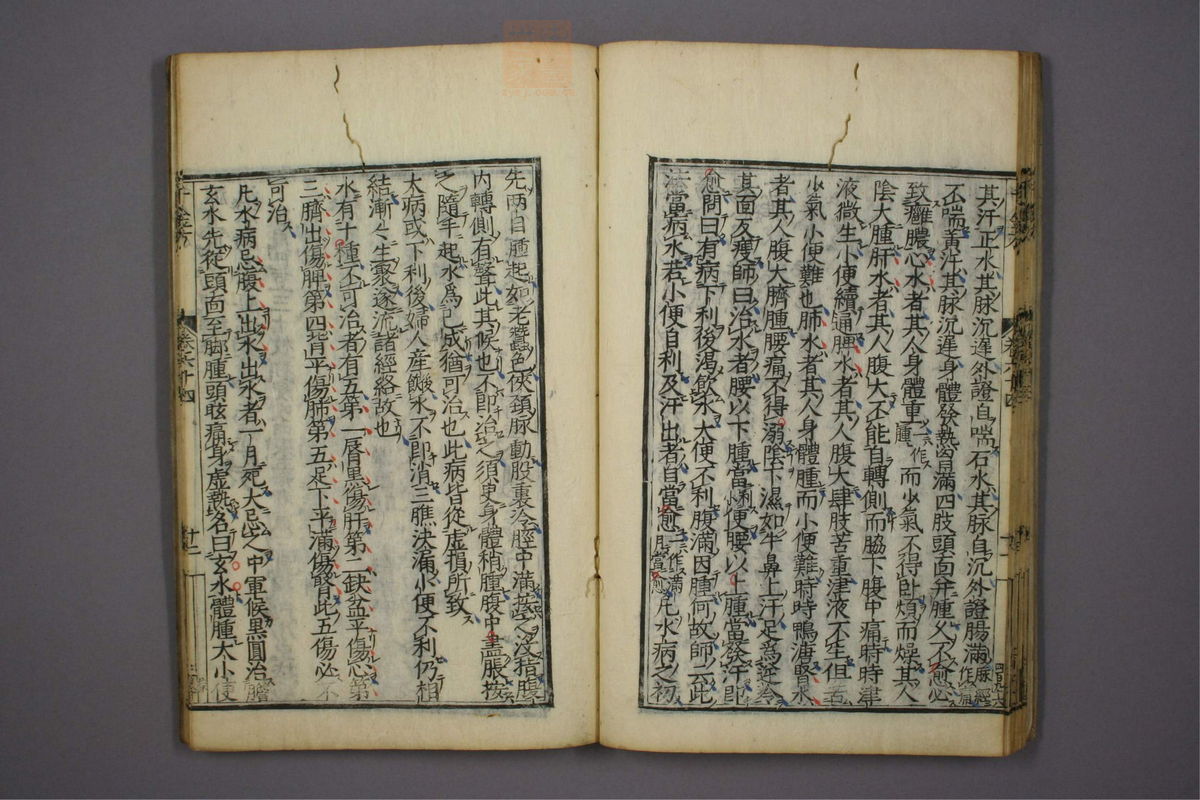 其汗正水其脉沉遲外證自喘石水其脉自沉外證腸滿脉經作腹
不喘黃汗其脉沉遲身體發熱胷滿四肢頭面并腫久不愈必
致癰膿心水者其人身體重一作腫而少氣不得卧煩而燥其人
陰大腫肝水者其人腹大不能自轉側而脇下腹中痛時時津
液微生小便續通脾水者其人腹大四肢苦重津液不生但苦
少氣小便難也肺水者其人身體腫而小便難時時鴨溏腎水
者其人腹大臍腫腰痛不得溺陰下濕如牛鼻上汗足爲逆冷
其面反瘦師曰治水者腰以下腫當利小便腰以上腫當發汗即
愈問曰有病下利後渴飲水大便不利腹滿因腫何故師云此
法當病水若小便自利及汗出者自當愈一作滿月當愈凡水病之初
先兩目腫起如老蠶色俠頸脉動股裏冷脛中滿按之没指腹
内轉側有聲此其候也不即治之須臾身體稍腫腹中盡脹按
之隨手起水爲已成猶可治也此病皆從虛損所致
大病或下利後婦人産後飲水不即消三膲決漏小便不利仍相
結漸々生聚遂流諸經絡故也
水有十種不可治者有五第一脣黑傷肝第二缺盆平傷心第
三臍出傷脾第四背平傷肺第五足下平滿傷腎此五傷必不
可治
凡水病忌腹上出水出水者一月死大忌之中軍候黑圓治膽
玄水先從頭面至脚腫頭眩痛身虛熱名曰玄水體腫大小便